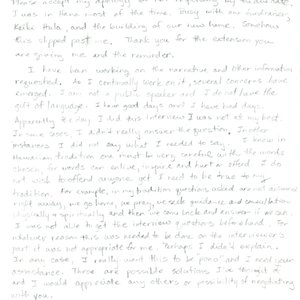 Please accept my apology
I was in there most of the time. Busy with our fundraising
Keiki Hula, and the building of our new home. Somehow
this slipped past me. Thank you for the extension you
are giving me and the reminder.
I have been working on the narrative and other information
requested. As I continually work on it, several concerns have
emerged. I am not a public speaker and I do not have the
gift of language. I have good days and I have bad days.
Apparently the day I did this interview I was not at my best.
In some cases, I didn't really answer the question. In other
instances I did not say what I needed to say. I know in
Hawaiian tradition one must be very careful, as the words
chosen, for words can enliven, inspire and hurt or offend. I do
not wish to offend anyone yet I need to be true to my
tradition. For example, in my tradition questions asked are not answered
right away, we go home, we pray, we seek guidance and consultation
physically & spiritually and then we come back and answer if we can.
I was not able to get the interview questions beforehand. For
whatever reason this was needed to be done on the interviewer's
part it was not appropriate for me. Perhaps I didn't explain.
In any case, I really want this to be "pono" and I need your
assistance. There are possible solutions I've thought of
and I would appreciate any others or possibility of negotiating
with you.